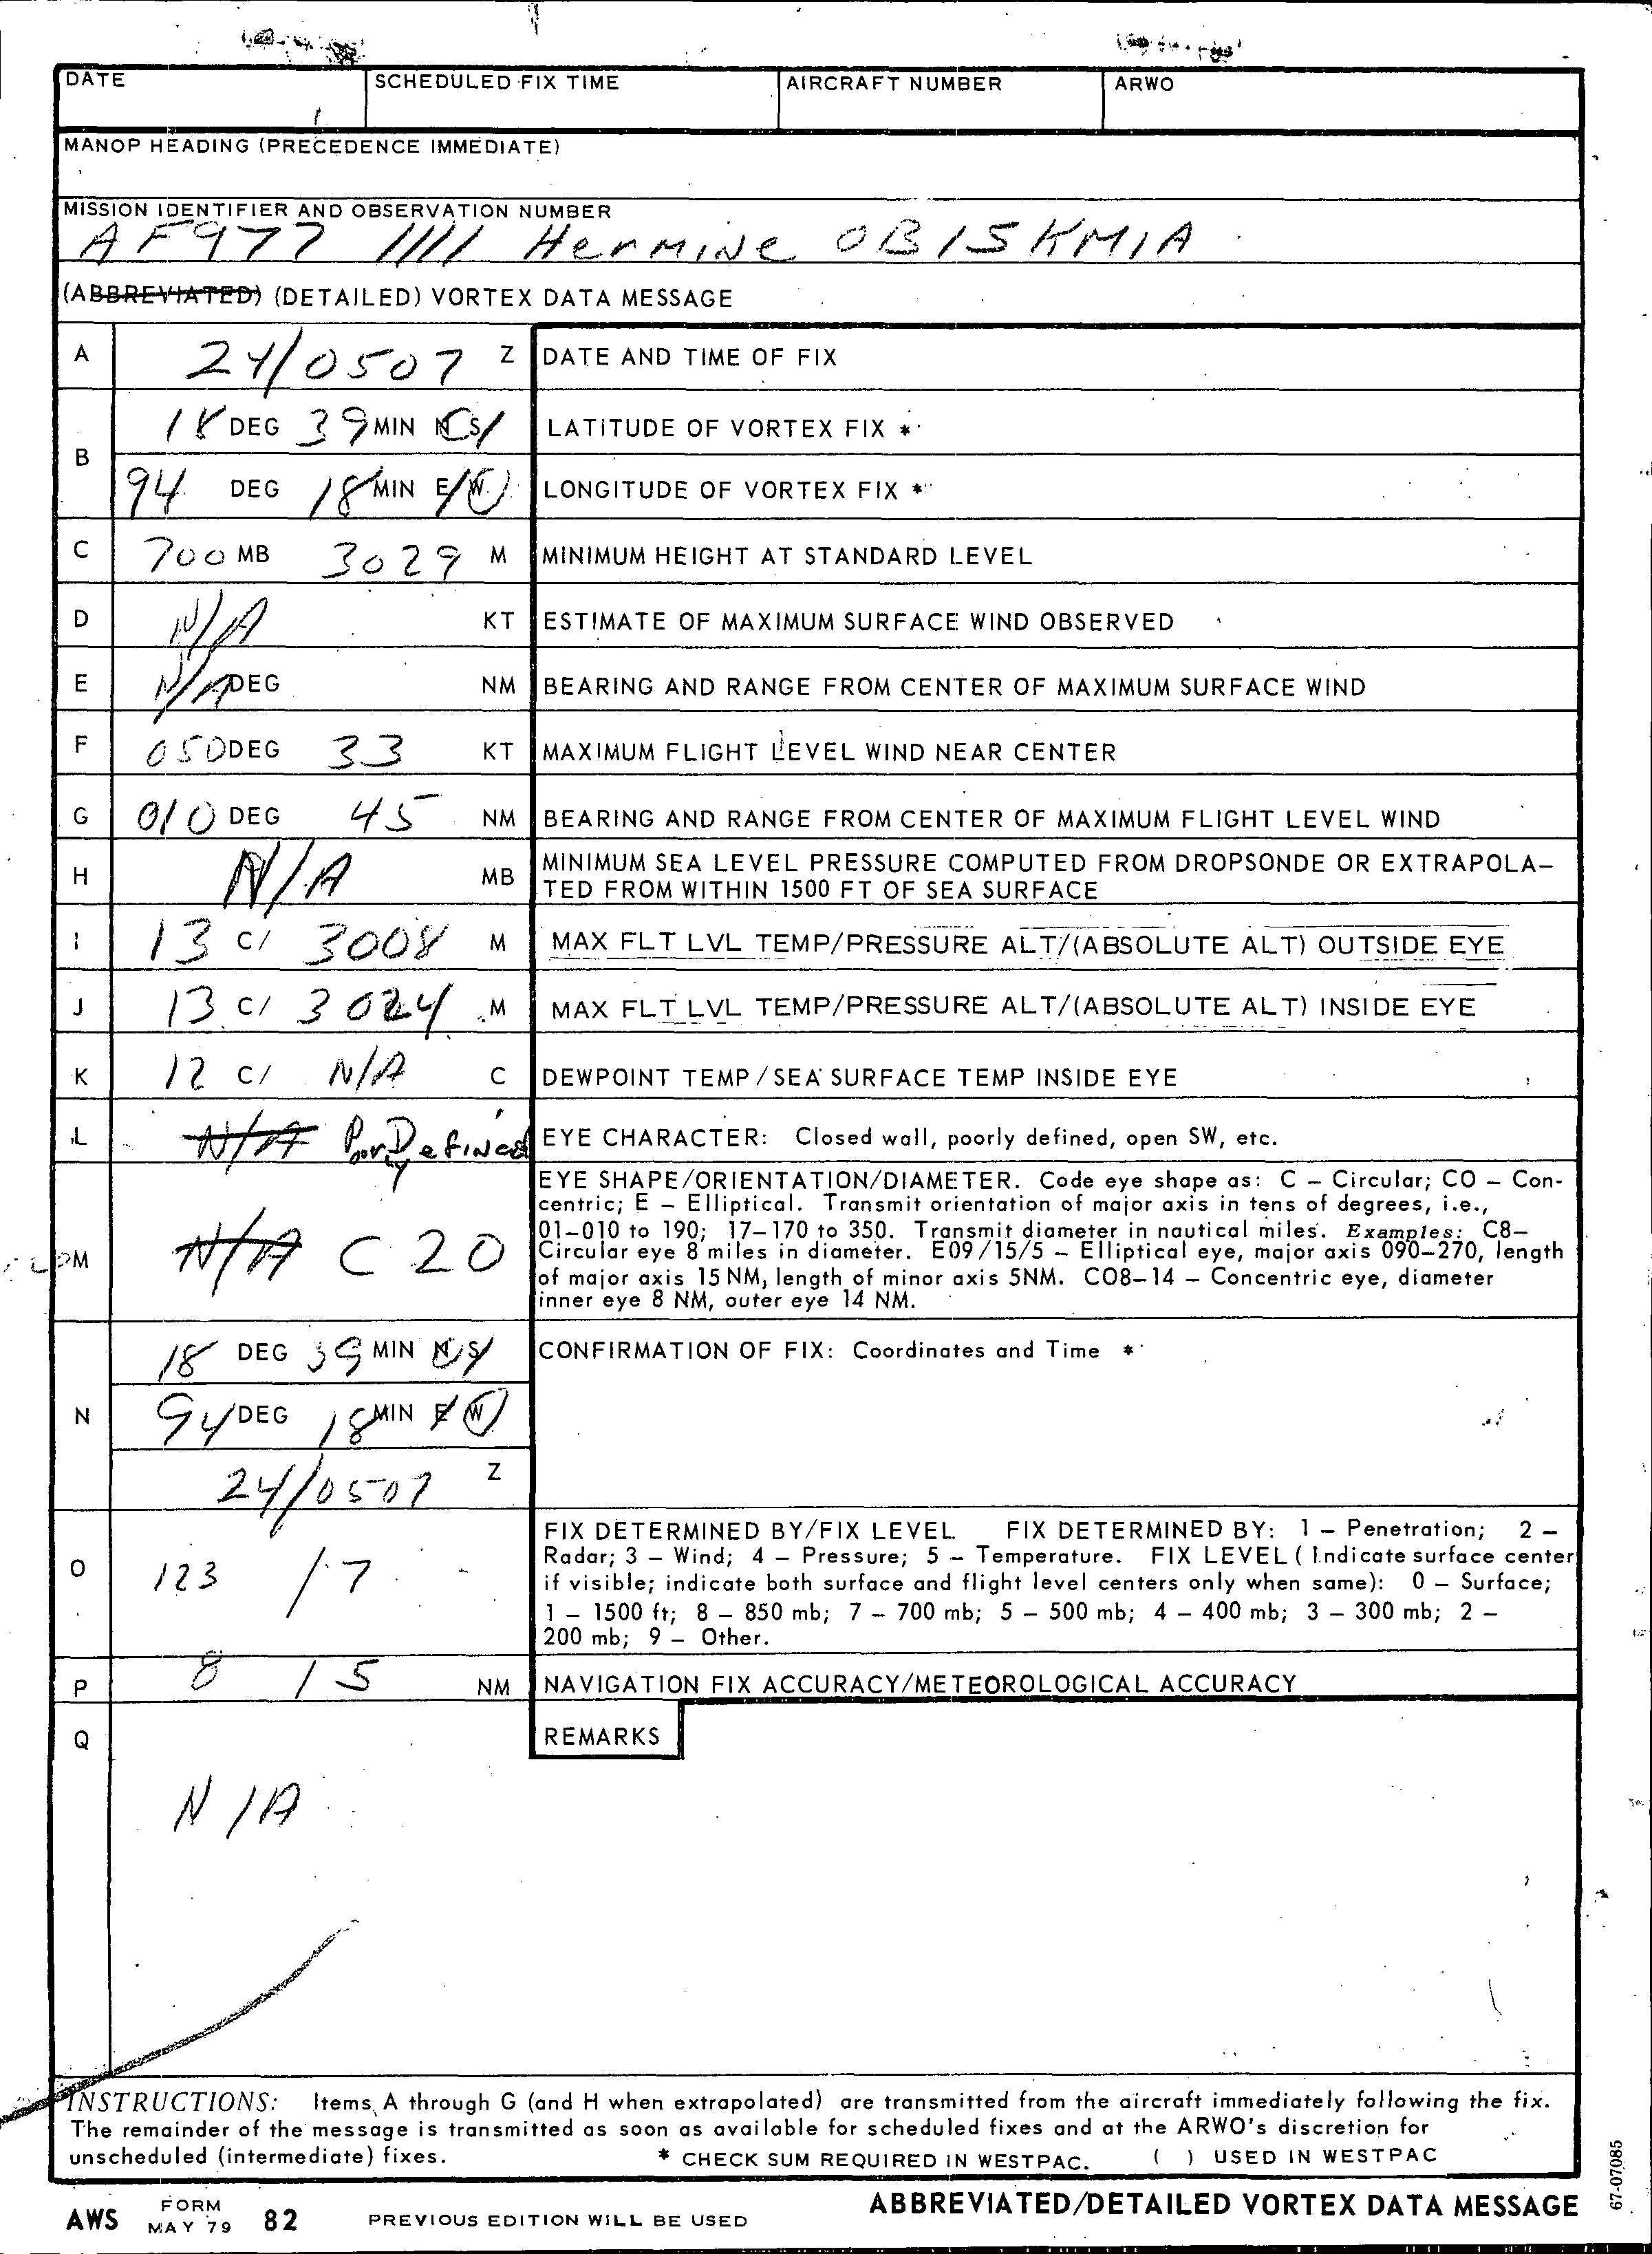 DATE SCHEDULED FIX TIME AIRCRAFT NUMBER ARWO
MANOP HEADING (PRECEDENCE IMMEDIATE)
MISSION IDENTIFIER AND OBSERVATION NUMBER
AF977 1111 Hermine OB 15 KMIA
(ABBREVIATED) (DETAILED) VORTEX DATA MESSAGE
A 24/0507 Z DATE AND TIME OF FIX
B 18 DEG 39 MIN N S LATITUDE OF VORTEX FIX *
94 DEG 18 MIN E/W LONGITUDE OF VORTEX FIX *
C 700 MB 3029 M MINIMUM HEIGHT AT STANDARD LEVEL
D N/A KT ESTIMATE OF MAXIMUM SURFACE WIND OBSERVED
E N/A DEG NM BEARING AND RANGE FROM CENTER OF MAXIMUM SURFACE WIND
F 050 DEG 33 KT MAXIMUM FLIGHT LEVEL WIND NEAR CENTER
G 010 DEG 45 NM BEARING AND RANGE FROM CENTER OF MAXIMUM FLIGHT LEVEL WIND
H N/A MB MINIMUM SEA LEVEL PRESSURE COMPUTED FROM DROPSONDE OR EXTRAPOLA-
TED FROM WITHIN 1500 FT OF SEA SURFACE
I 13 C/ 3008 M MAX FLT LVL TEMP/PRESSURE ALT/(ABSOLUTE ALT) OUTSIDE EYE
J 13 C/ 3024 M MAX FLT LVL TEMP/PRESSURE ALT/(ABSOLUTE ALT) INSIDE EYE
K 12 C/ N/A C DEWPOINT TEMP/SEA SURFACE TEMP INSIDE EYE
L N/A Poorly Defined EYE CHARACTER: Closed wall, poorly defined, open SW, etc.
EYE SHAPE/ORIENTATION/DIAMETER. Code eye shape as: C – Circular; CO – Con-
centric; E – Elliptical. Transmit orientation of major axis in tens of degrees, i.e.,
01–010 to 190; 17–170 to 350. Transmit diameter in nautical miles. Examples: C8–
M N/A C 20 Circular eye 8 miles in diameter. E09/15/5 – Elliptical eye, major axis 090–270, length
of major axis 15 NM, length of minor axis 5NM. CO8–14 – Concentric eye, diameter
inner eye 8 NM, outer eye 14 NM.
18 DEG 39 MIN N/S CONFIRMATION OF FIX: Coordinates and Time *
N 94 DEG 18 MIN E W
24/0507 Z
FIX DETERMINED BY/FIX LEVEL. FIX DETERMINED BY: 1 – Penetration; 2 –
O 123 / 7 Radar; 3 – Wind; 4 – Pressure; 5 – Temperature. FIX LEVEL (Indicate surface center
if visible; indicate both surface and flight level centers only when same): 0 – Surface;
1 – 1500 ft; 8 – 850 mb; 7 – 700 mb; 5 – 500 mb; 4 – 400 mb; 3 – 300 mb; 2 –
200 mb; 9 – Other.
P 8 / 5 NM NAVIGATION FIX ACCURACY/METEOROLOGICAL ACCURACY
Q REMARKS
N/A
INSTRUCTIONS: Items A through G (and H when extrapolated) are transmitted from the aircraft immediately following the fix.
The remainder of the message is transmitted as soon as available for scheduled fixes and at the ARWO's discretion for
unscheduled (intermediate) fixes. * CHECK SUM REQUIRED IN WESTPAC. ( ) USED IN WESTPAC
67-07085
AWS FORM MAY 79 82 PREVIOUS EDITION WILL BE USED ABBREVIATED/DETAILED VORTEX DATA MESSAGE